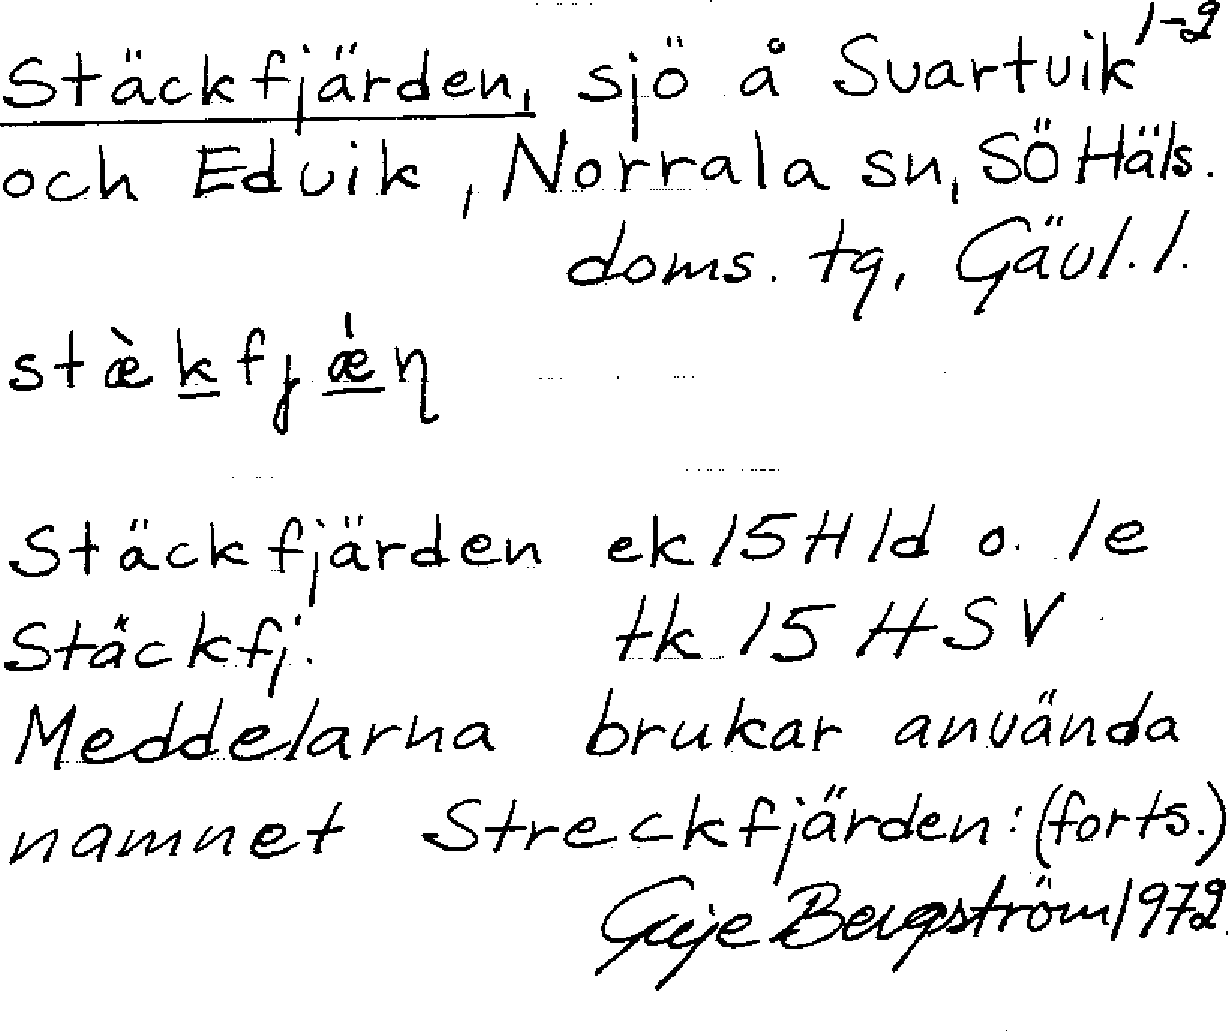 Stäckfjärden, sjö å Svartvik 1-2
och Edvik, Norrala sn, SÖ Häls.
doms. tg, Gävl. l.
stæ̀kfjǽɳ
Stäckfjärden ek 15H 1d o. 1e
Stäckfj. tk 15 H SV
Meddelarna brukar använda
namnet Streckfjärden: (forts.)
Bergström 1972.